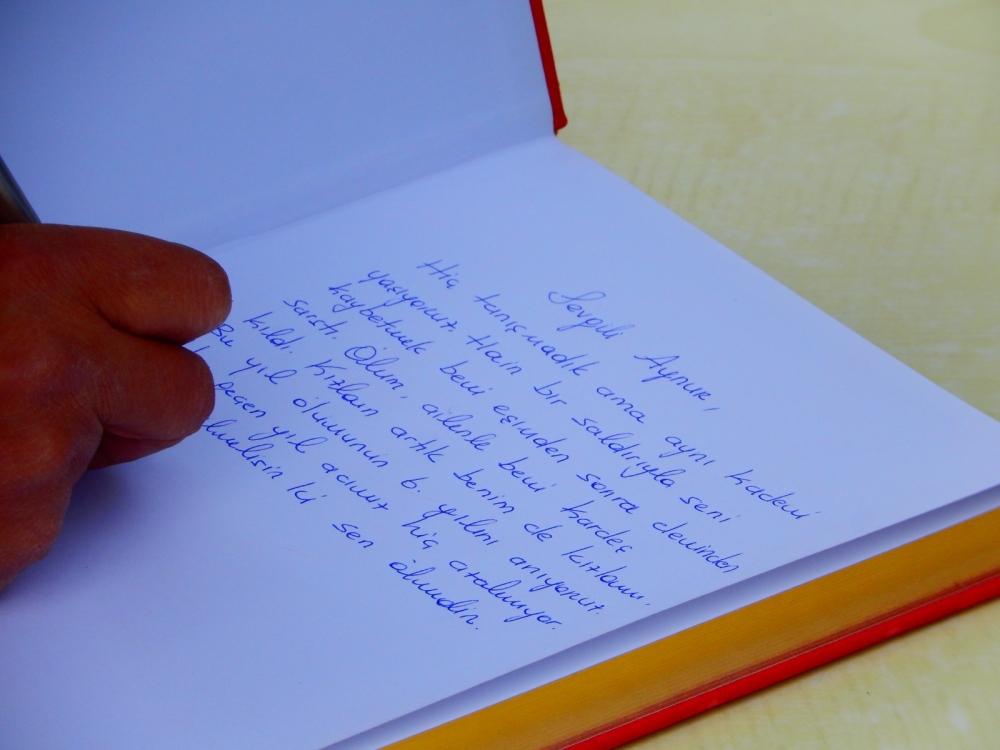 Sevgili Aynur,
Hiç tanışmadık ama aynı kaderi
yaşıyoruz. Hain bir saldırıyla seni
kaybetmek beni eşimden sonra derinden
sarstı. Ölüm, ailenle beni kardeş
kıldı. Kızların artık benim de kızlarım.
Bu yıl ölümünün 6. yılını anıyoruz.
geçen yıl acımız hiç azalmıyor.
ki sen ölmedin.